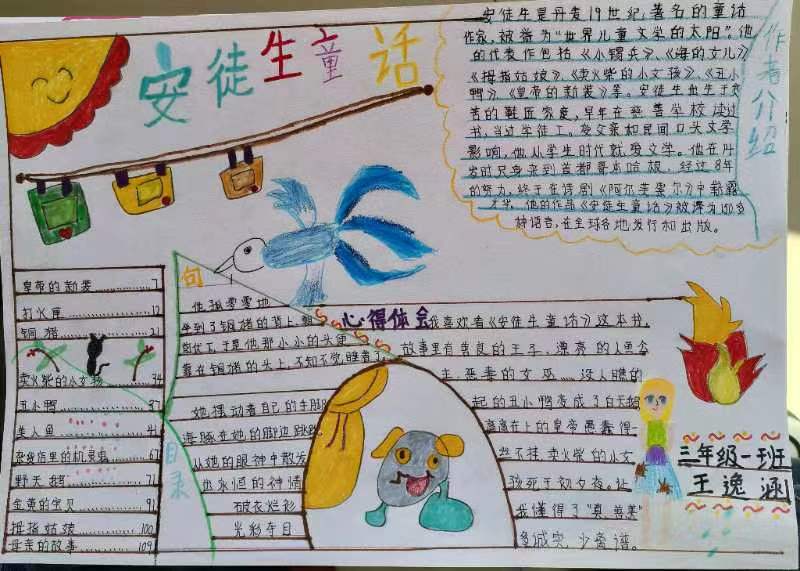 安徒生童话
作者介绍
安徒生是丹麦19世纪,著名的童话
作家,被称为“世界儿童文学的太阳”。他
的代表作包括《小锡兵》、《海的女儿》
《拇指姑娘》、《卖火柴的小女孩》、《丑小
鸭》、《皇帝的新装》等。安徒生出生于
者的鞋匠家庭,早年在慈善学校读过
书,当过学徒工。受父亲和民间口头文学
影响,他从学生时代就爱文学。他在
岁时只身来到首都哥本哈根,经过8年
的努力,终于在诗剧《阿尔芙索尔》中
才华。他的作品《安徒生童话》被译为150多
种语言,在全球各地发行和出版。
目录
皇帝的新装............7
打火匣............12
铜猪............21
卖火柴的小女孩............34
丑小鸭............37
美人鱼............
杂货店里的机灵鬼............67
野天鹅............71
金黄的宝贝............91
拇指姑娘............100
母亲的故事............109
句
他孤零零地
坐到了铜猪的背上,
于是他那小小的头便
靠在铜猪的头上,不知不觉睡着了
她摆动着自己的手脚
海豚在她的脚边跳跃
从她的眼神中散发
出永恒的神情
破衣烂衫
光彩夺目
心得体会
我喜欢看《安徒生童话》这本书,
故事里有善良的王子、漂亮的人鱼公
主、恶毒的女巫……没人瞧的
起的丑小鸭变成了白天鹅
高高在上的皇帝愚蠢得一
些不挂,卖火柴的小女
孩死于初夕夜。让
我懂得了“真善美”
多诚实,少
三年级一班
王逸涵